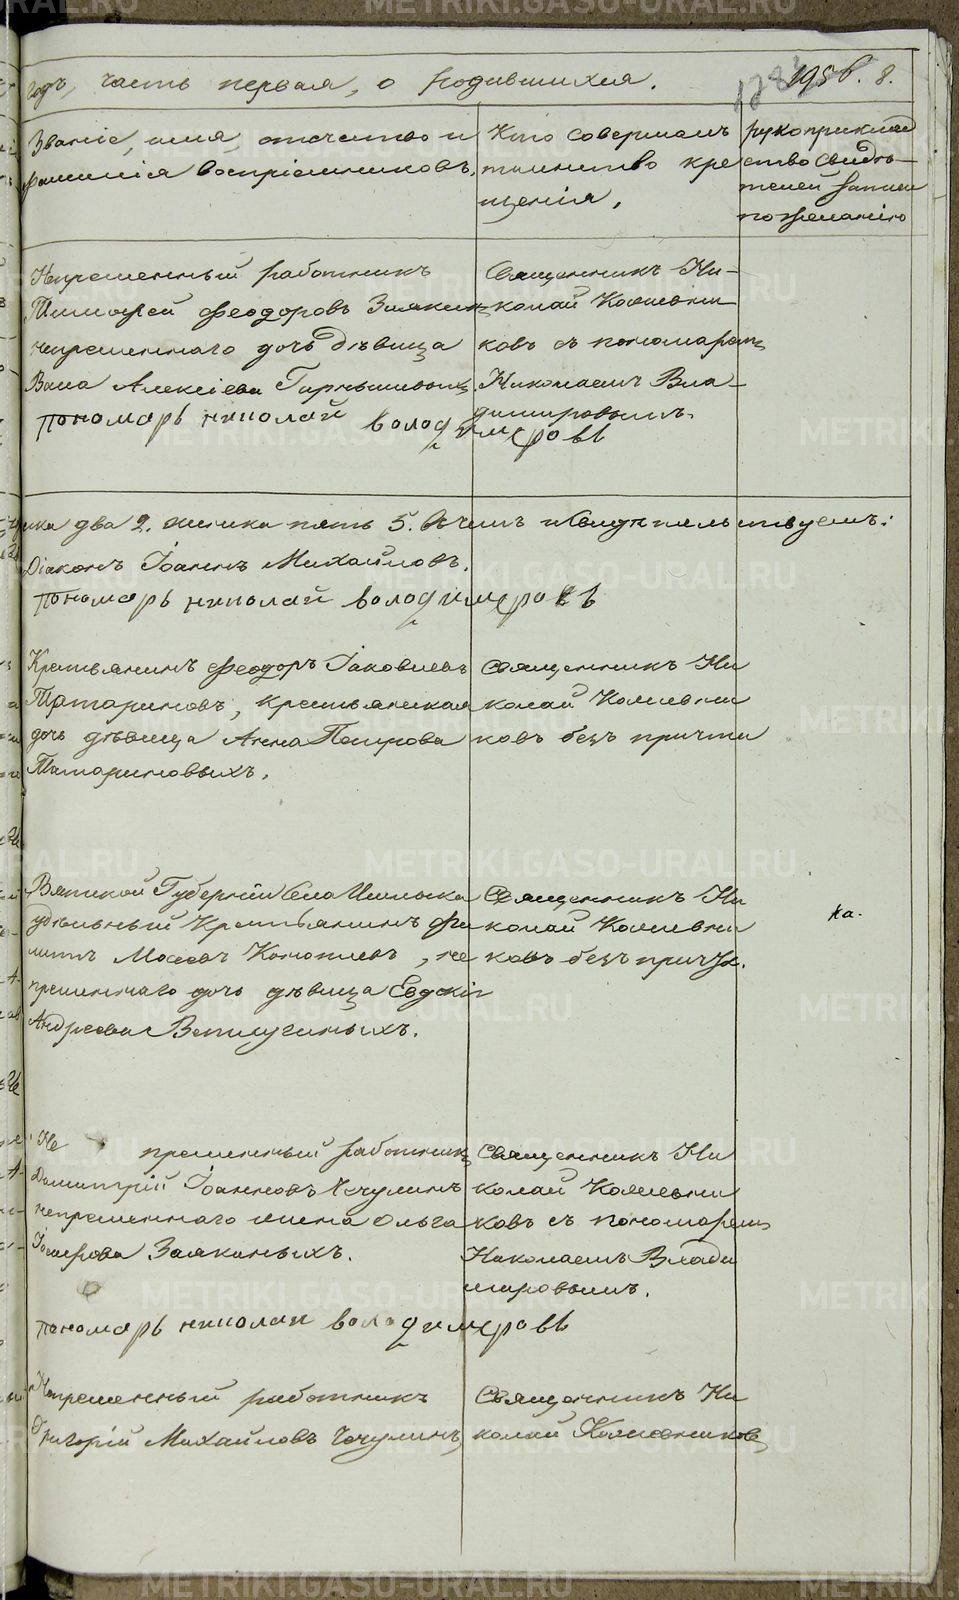 годъ, часть первая, о родившихся.
195 8.
Званіе, имя, отчество и
фамилія воспріемниковъ.
Кто совершалъ
таинство кре
щенія.
рукоприклад
ство свидѣ-
телей записи
по желанію
Непременный работникъ
Тимофей Феодоровъ Заякинъ
непременнаго дочь дѣвица
Алексіева
пономарь николай володимеровъ
Священникъ Ни-
колай Кожевни
ковъ съ пономаремъ
Николаемъ Вла-
димировымъ.
два 2. женска пять 5. Въ чемъ и свидѣтельствуемъ:
Діаконъ Іоаннъ Михайловъ.
пономарь николай володимеровъ
Крестьянинъ Феодоръ Іаковлевъ
Татариновъ, крестьянская
дочь дѣвица Анна Петрова
Татариновыхъ.
Священникъ Ни
колай Кожевни
ковъ безъ причта
Вятской Губерніи Села
удѣльный Крестьянинъ Фи
липъ Моѵсеевъ Коноплевъ, не
пременнаго дочь дѣвица Евдокія
Андреева Ветлугиныхъ.
Священникъ Ни
колай Кожевни
ковъ безъ причта.
ка.
Не пременный работникъ
Димитрій Іоанновъ Чечулинъ
непременнаго жена Ольга
Заякиныхъ.
пономарь николай володимеровъ
Священникъ Ни
колай Кожевни
ковъ съ пономаремъ
Николаемъ Влади
мировымъ.
Непременный работникъ
Григорій Михайловъ Чечулинъ,
Священникъ Ни
колай Кожевниковъ
METRIKI.GASO-URAL.RU